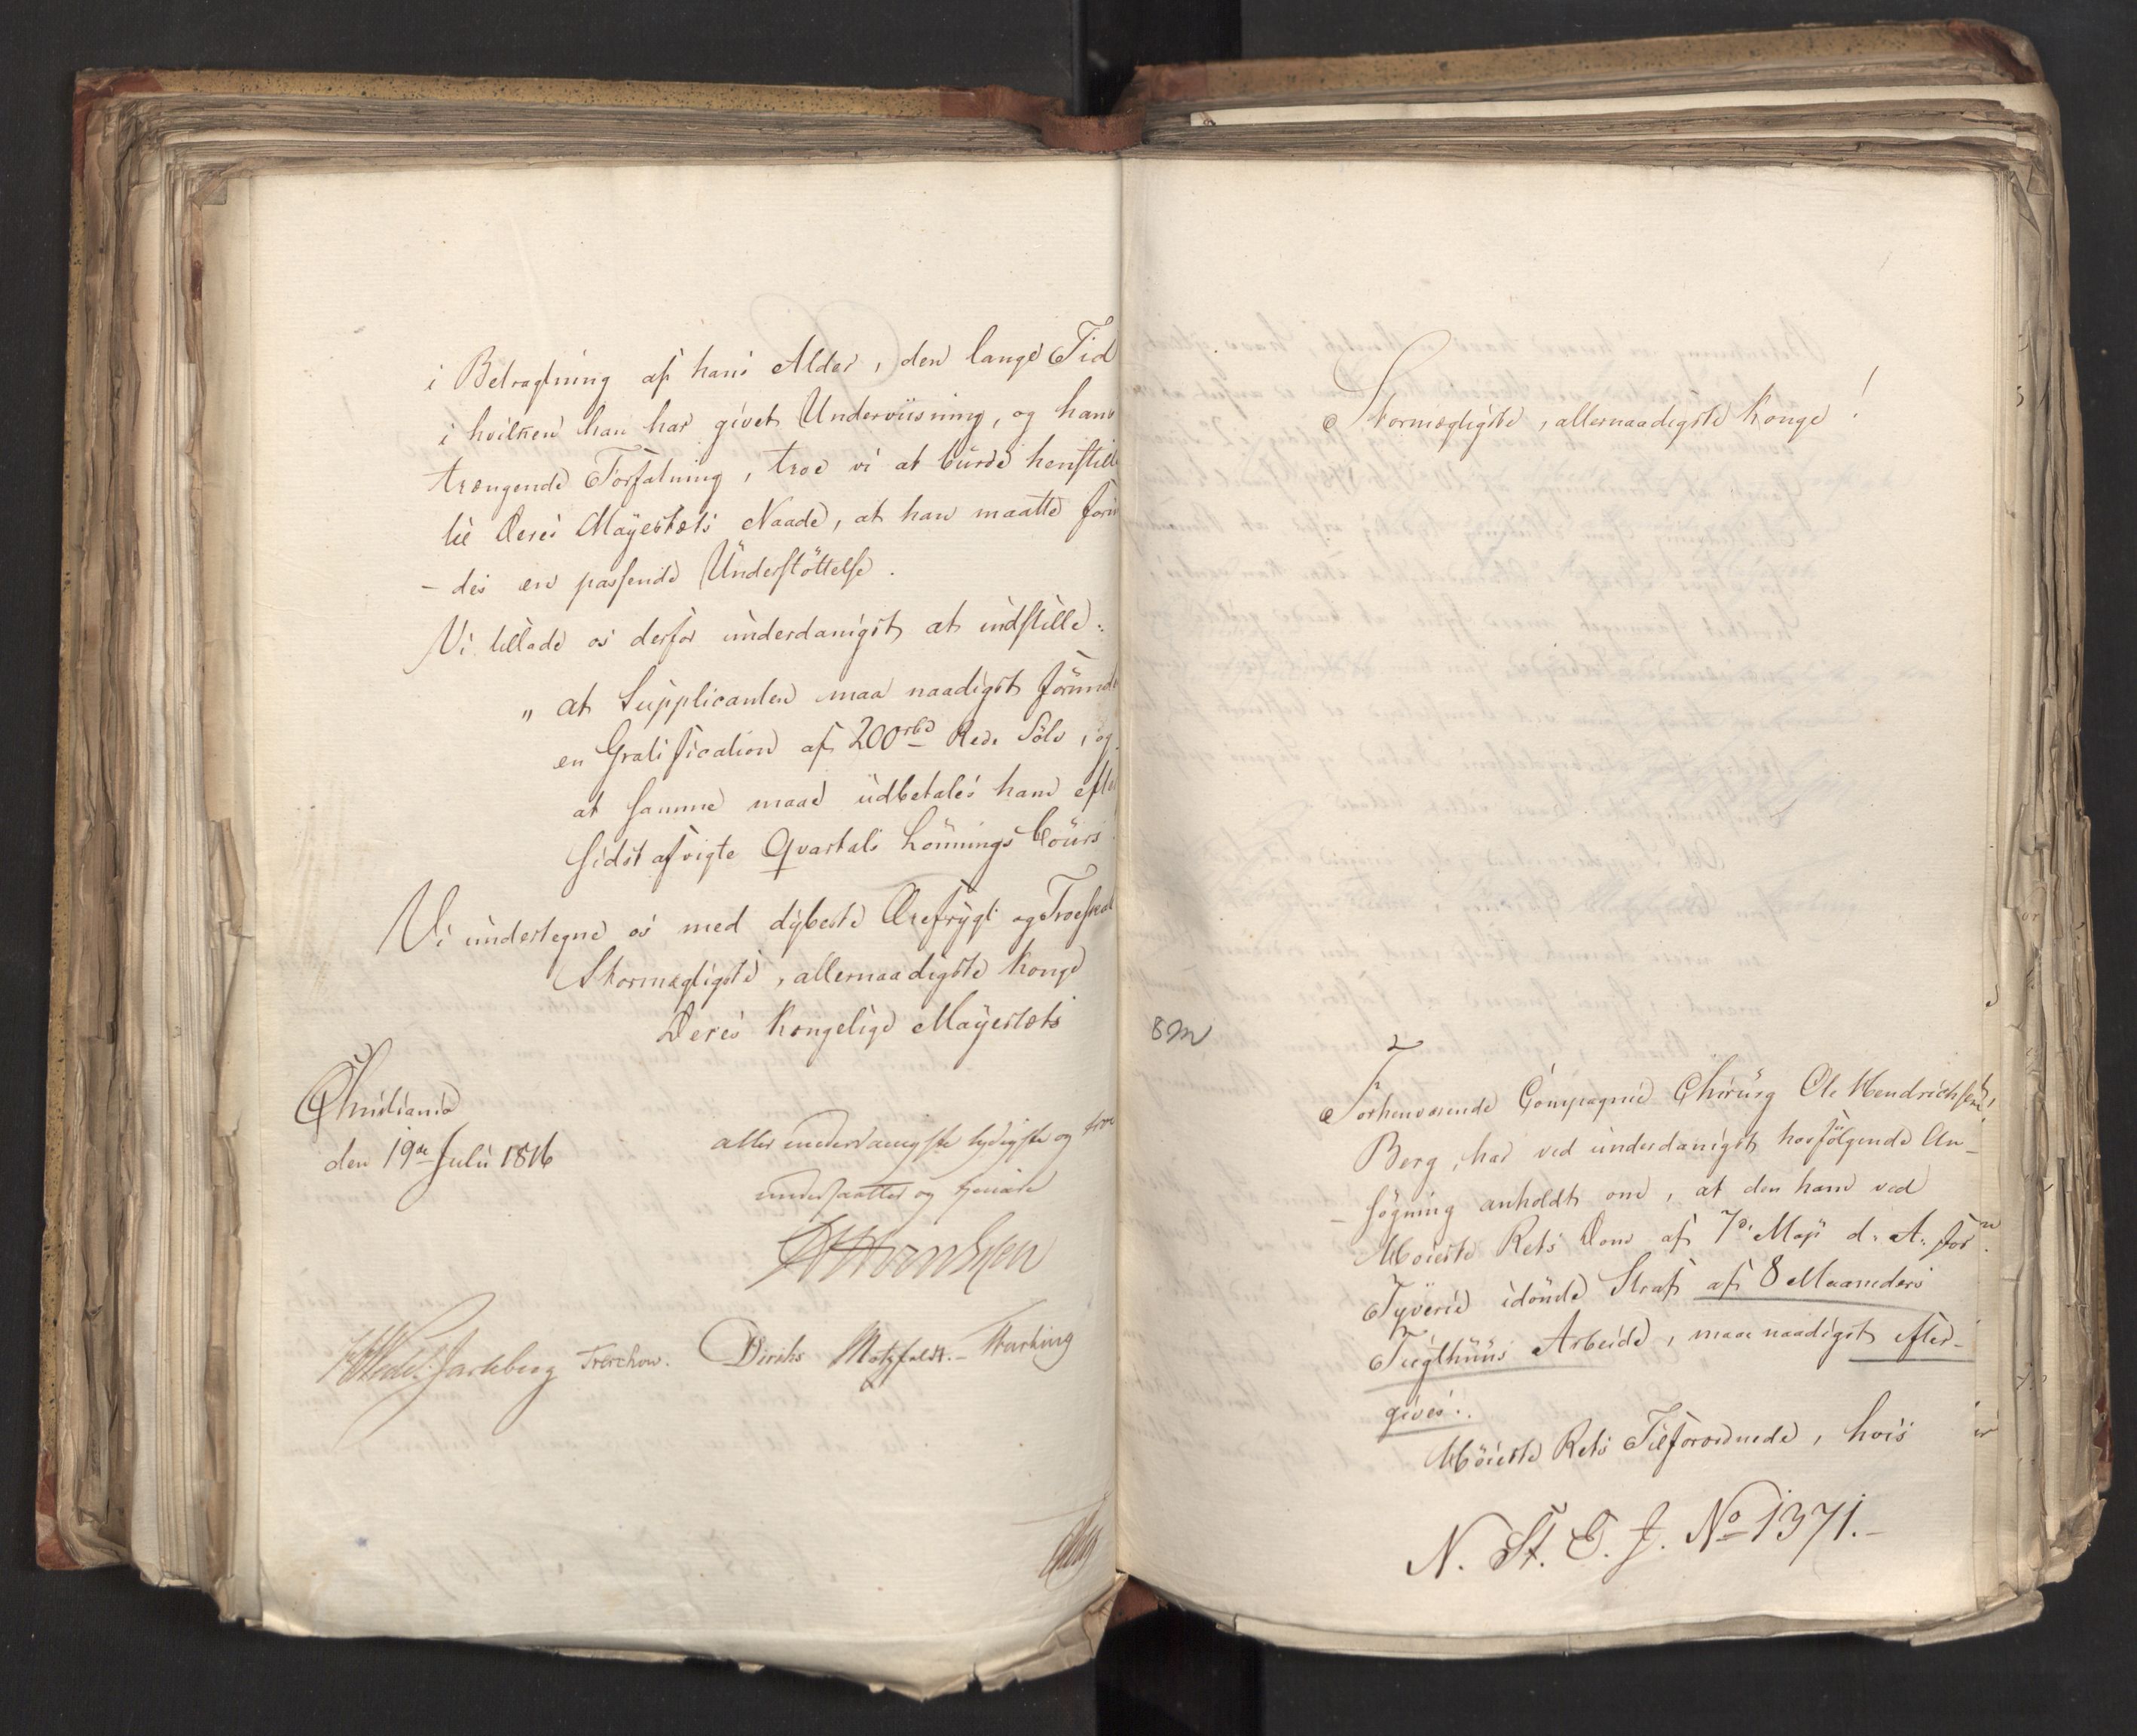 i Betragtning af hans Alder, den lange Tid
i hvilken han har givet Underviisning, og hans
trængende Forfatning, troe vi at burde henstille
til Deres Mayestets Naade, at han maatte forün
- des en passende Understöttelse.
Vi tillade os derfor underdanigst at indstille:
" at Supplicanten maa naadigst foründe
en Gratification af 200 rbd Rede Sölv, og
at samme maae udbetales ham efter
sidst afvigte Qvartals Lönnings Cours.
Vi undertegne os med dybeste Ærefrygt og Troeskab
Stormægtigste, allernaadigste Konge
Deres Kongelige Mayestets
Christiania
den 19de Julii 1816
aller underdanigste lydigste og troe
undersaatter og tienere
M Sommerhielm
HWedel Jarlsberg Treschow. Diriks Motzfeldt.- Fasting
Stormægtigste, allernaadigste Konge!
8 M
2
Forhenværende Compagnie Chirürg Ole Hendrichsen
Berg, har ved underdanigst hosfölgende An-
- sögning anholdt om, at den ham ved
Höieste Rets Dom af 7de Maji d. A. for
Tyverie idömte Straf af 8 Maaneders
Tügthüüs Arbeide, maae naadigst efter-
gives.
Höieste Rets Tilforordnede, hvis
N. St. E. J. No 1371.-